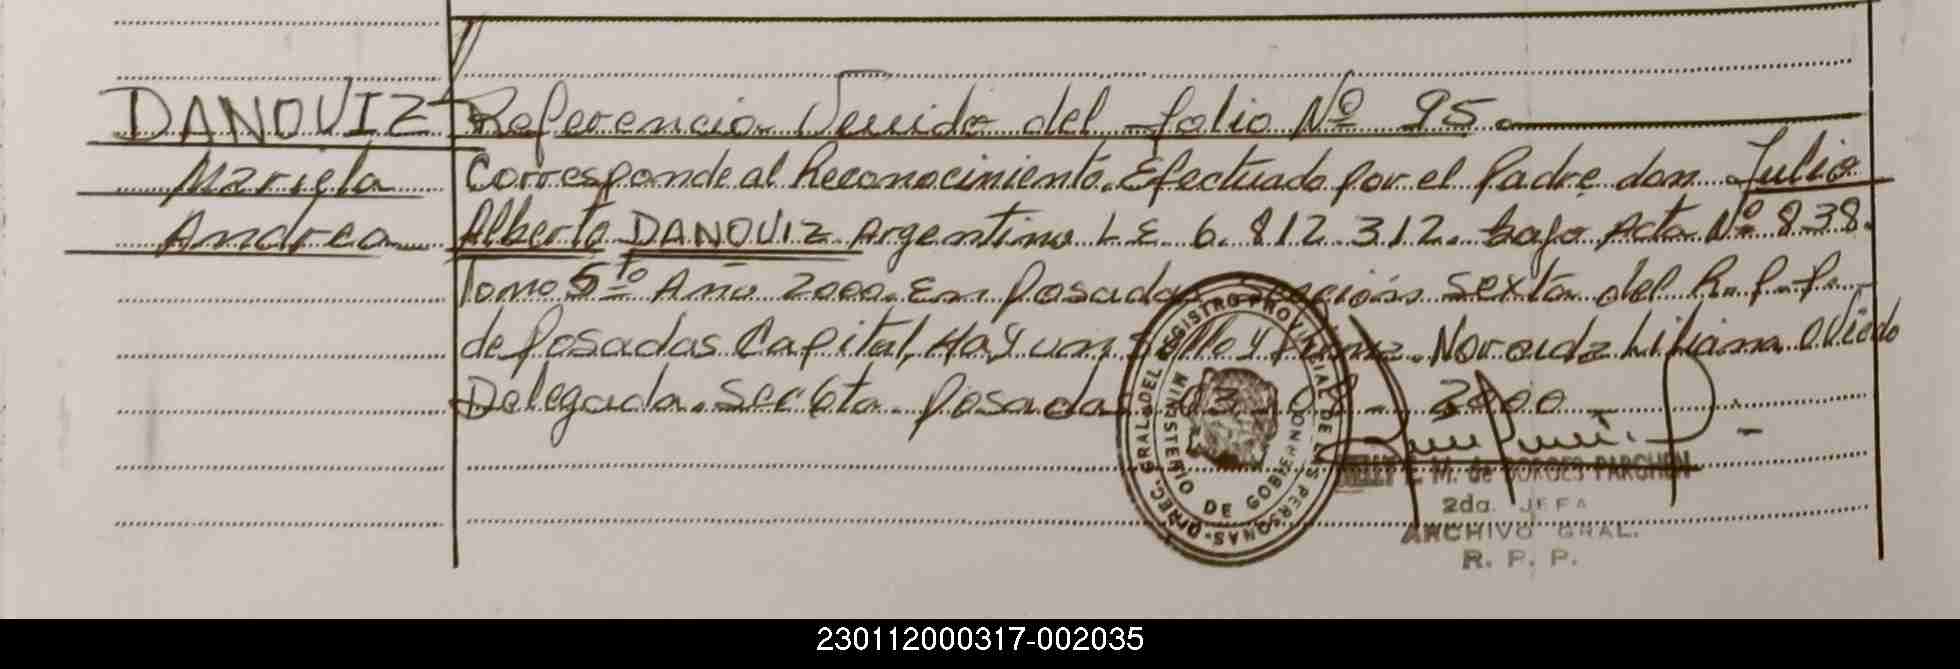 DANOUIZ Referencia Venida del folio Nº 95.
Mariela Corresponde al Reconocimiento. Efectuado por el Padre don Julio
Andrea Alberto DANOUIZ Argentino L E 6.812.312. bajo Acta Nº 838.
Tomo 5to Año 2000. En Posadas Sección Sexta del R.P.P.
de Posadas Capital, Hay un Sello y firma. Liliana Oviedo
Delegada. Sec 6ta. Posadas 08-2000
DIREC. GRAL. DEL REGISTRO PROVINCIAL DE LAS PERSONAS
MINISTERIO DE GOBIERNO
M. de BORGES PARCHEN
2da. JEFA
ARCHIVO GRAL.
R. P. P.
230112000317-002035